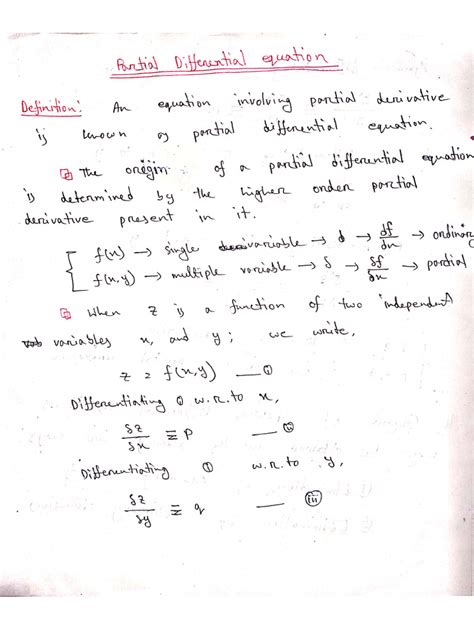 Partial Differential equation
Definition: An equation involving partial derivative
is known as partial differential equation.
The origin of a partial differential equation
is determined by the higher order partial
derivative present in it.
f(x) → single variable → d → df/dx → ordinary
f(x,y) → multiple variable → δ → δf/δx → partial
When z is a function of two independent
variables x, and y; we write,
z = f(x,y) — (i)
Differentiating (i) w.r.to x,
δz/δx ≡ p — (ii)
Differentiating (i) w.r.to y,
δz/δy ≡ q — (iii)